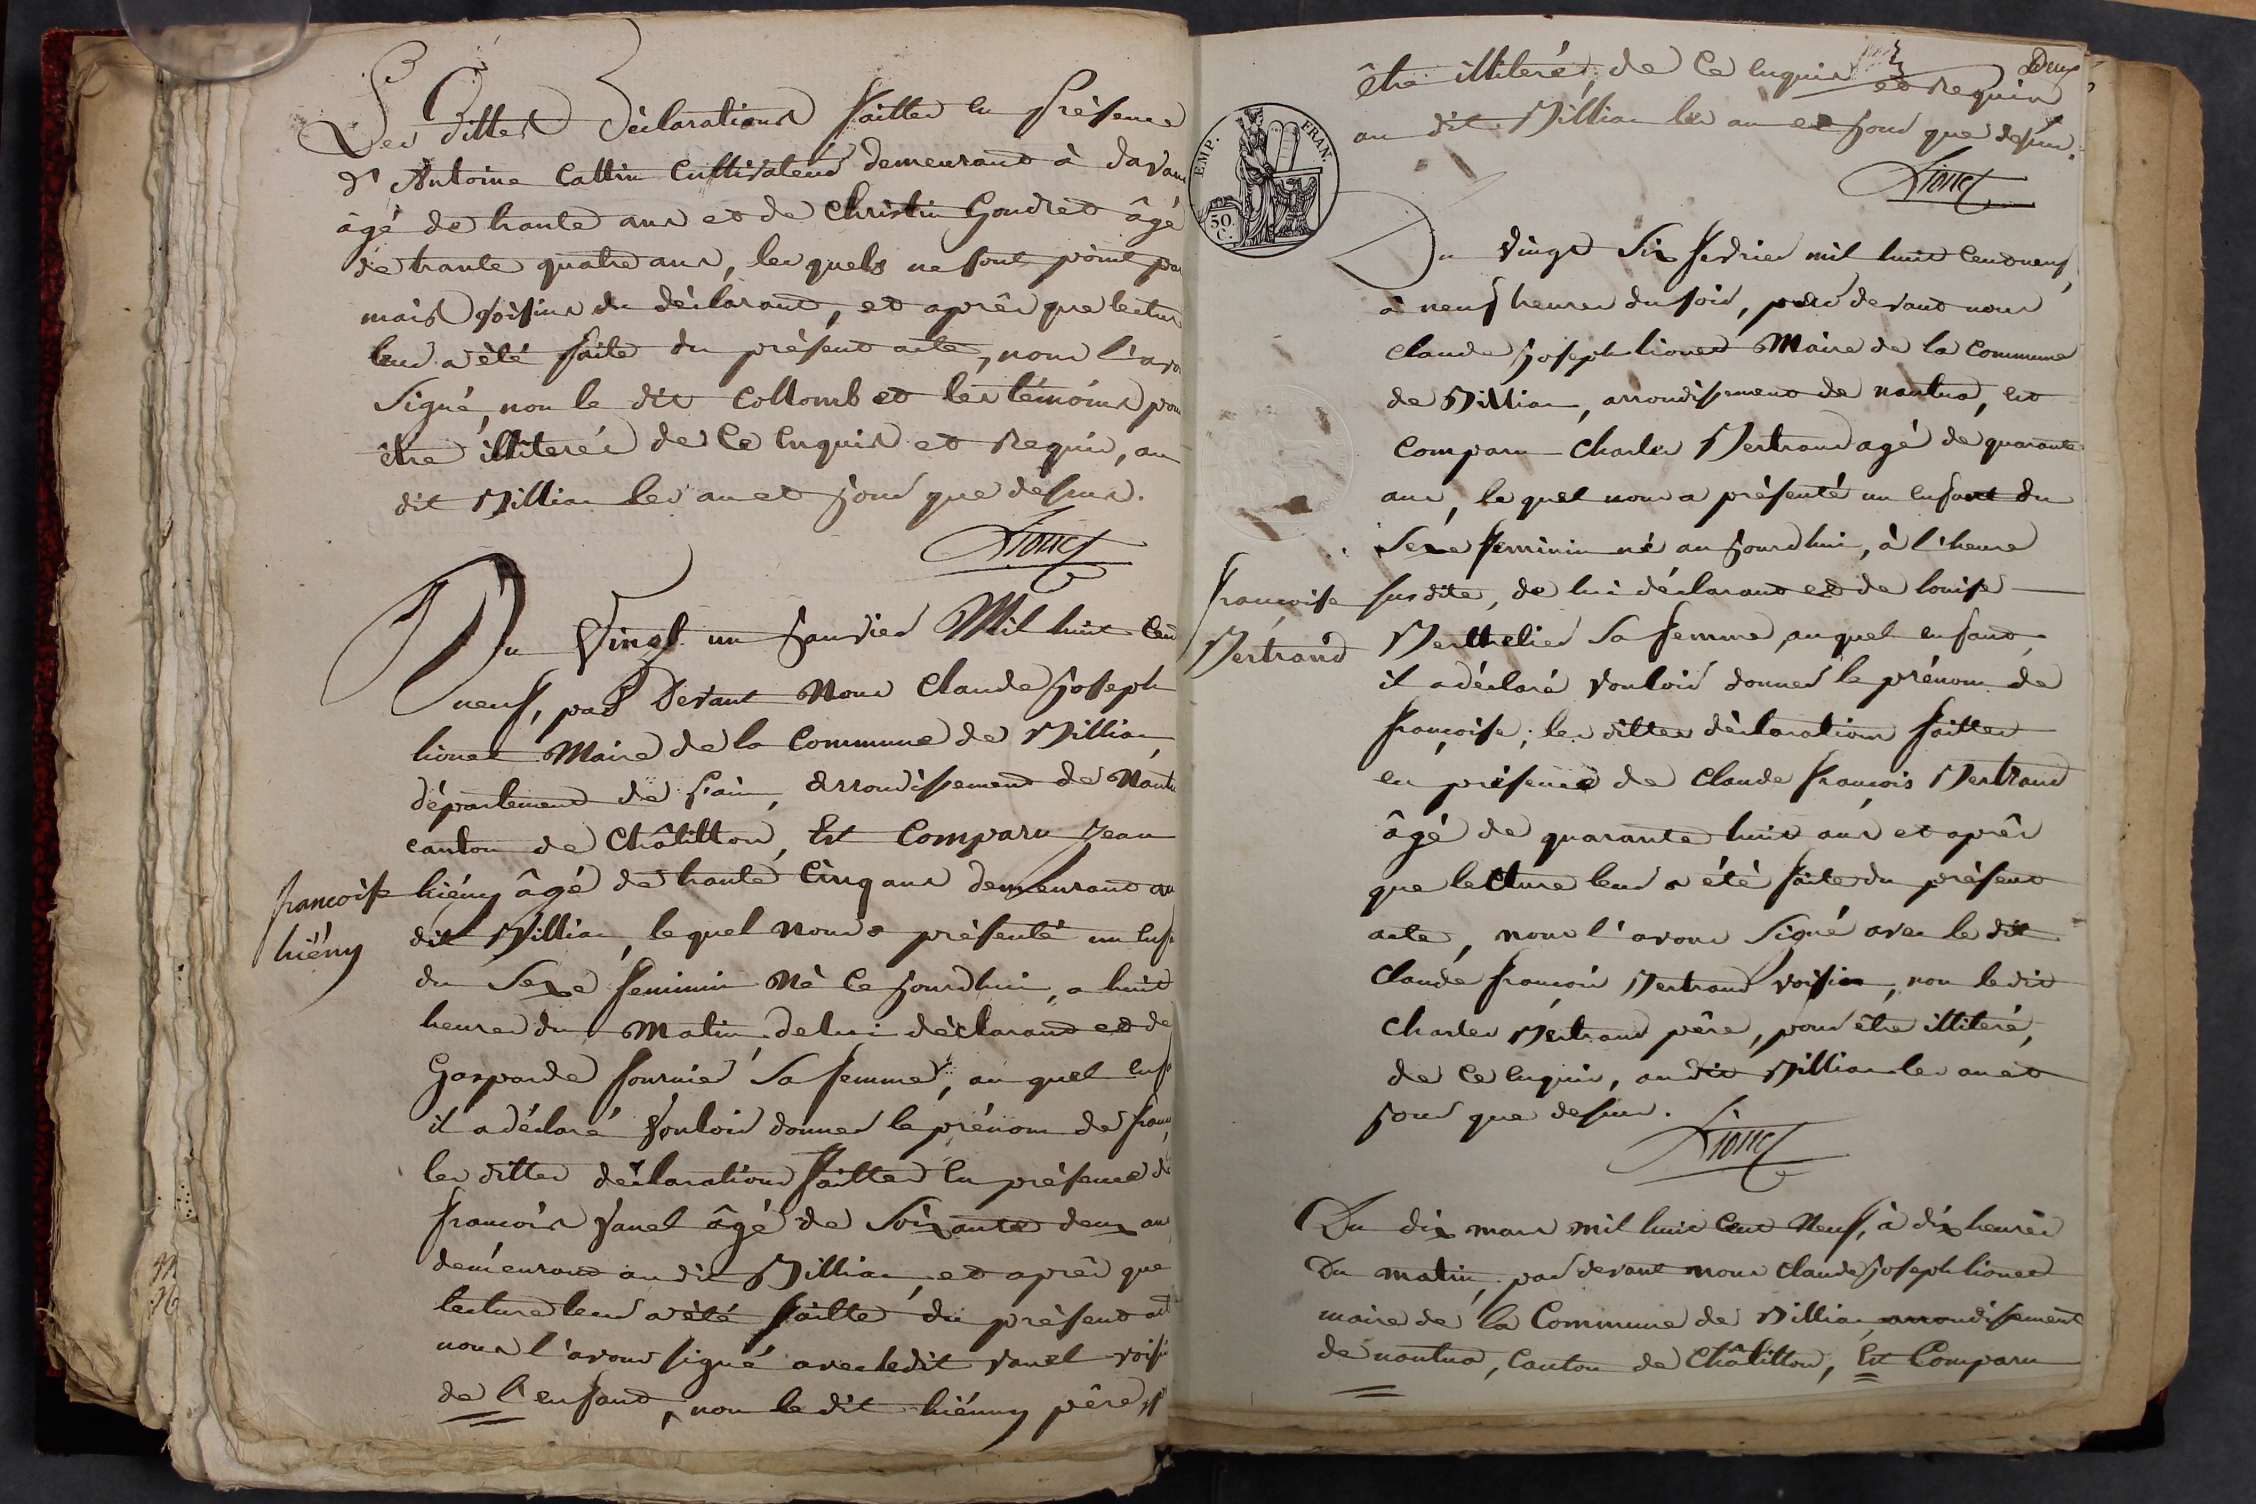 Les dittes Déclarations faittes en présence
d'Antoine Cattin Cultivateur demeurant à davan
âgé de trante ans et de Christin Goudret âgé
de trante quatre ans, les quels ne sont point par
mais voisins du déclarant, et après que lectur
leur a été faite du présent acte, nous l'avo
Signé, non le dit Collomb et les témoins pour
être illiterés de Ce enquis et requis, au
dit Billiat les an et jour que dessus.
Lionet
Du Vingt un janvier Mil huit Cen
neuf, par Devant Nous Claude joseph
lionet Maire de la Commune de Billiat,
département de l'ain, arrondissement de Nantu
canton de Châtillon, Est Comparu Jean
françoise
hiény
hiény âgé de trante Cinq ans demeurant au
dit Billiat, le quel Nous a présenté un enf
du Sexe feminin Né Ce jourdhui, a huit
heures du Matin, de lui déclarant et de
Gasparde fournier Sa femme, au quel enf
il a déclaré Vouloir donner le prénom de franç
les dittes déclarations faittes en présence de
françois Vanel âgé de Soixante deux an
demeurant au dit Billiat, et après que
lecture leur a été faitte du présent act
nous l'avons signé avec ledit Vanel voisi
de l'enfant, non le dit hiénny père, p
Deux
être illiteré, de Ce enquis et requis
au dit Billiat les an et jour que dessus.
Lionet
EMP. FRAN.
50 C.
Du Vingt Six fevrier mil huit Cent neuf,
à neuf heures du soir, par devant nous
Claude joseph lionet Maire de la Commune
de Billiat, arrondissement de nantua, est
Comparu Charles Bertrand agé de quarante
ans, le quel nous a présenté un enfant du
Sexe feminin né au jourdhui, à l'heure
françoise
Bertrand
susdite, de lui déclarant et de louise
Berthelier Sa femme, auquel enfant,
il a déclaré vouloir donner le prénom de
françoise; les dittes déclarations faittes
en présence de Claude françois Bertrand
âgé de quarante huit ans et après
que lecture leur a été faite du présent
acte, nous l'avons Signé avec le dit
Claude françois Bertrand voisin, non le dit
Charles Bertrand père, pour être illiteré,
de Ce enquis, au dit Billiat les an et
jour que dessus.
Lionet
Du dix mars mil huit Cent Neuf, à dix heures
Du matin, par devant nous Claude joseph lionet
maire de la Commune de Billiat, arrondissement
de nantua, Canton de Châtillon, Est Comparu